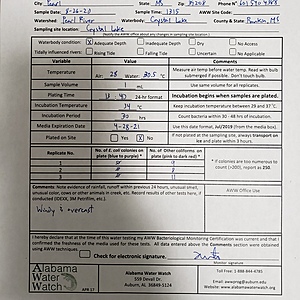 City Pearl St. MS Zip 39208 Phone 601 540 4388
Sample Date: 8-26-20 Sample Time: 1315 AWW Site Code:
Watershed Pearl River Waterbody: Crystal Lake County & State Rankin, MS
Sampling site location: Crystal Lake
(Notify the AWW office about any changes in sampling site location)
Waterbody condition: X Adequate Depth Inadequate Depth Dry No Access
Rising Tide Falling Tide Uncertain Not Tidally Influenced
Variable Value Comments
Temperature Air: 28 Water: 30.5 °C Measure air temp before water temp. Read with bulb submerged if possible. Don't touch bulb.
Sample Volume mL Use same volume for all replicates.
Plating Time 18:40 24-hr format Incubation begins when samples are plated.
Incubation Temperature °C Keep incubation temperature between 29 and 37 °C.
Incubation Period 30 hrs Count bacteria within 30 - 48 hrs of incubation.
Media Expiration Date 4-28-21 Use this date format, Jul/2019 (from the media box)
Plated on Site Yes X No If not plated at the sampling site, always transport on ice and plate within 3 hours
Replicate No. No. of E. coli colonies on plate (blue to purple) * No. of Other coliforms on plate (pink to dark red) * * if colonies are too numerous to count (>200), report as 250.
1 9
2 8
3 11
Comments: Note evidence of rainfall, runoff within previous 24 hours, unusual smell, unusual color, cows or other animals in creek, etc. Record results of other tests here, if conducted (IDEXX, 3M Petrifilm, etc.) AWW Office Use
Windy & overcast
I hereby declare that at the time of this water testing my AWW Bacteriological Monitoring Certification was current and that I confirmed the freshness of the media used for these tests. All data entered above the Comments section were obtained using AWW techniques
Check for electronic signature.
Monitor signature
Alabama Water Watch
APR-17
Alabama Water Watch
559 Devall Dr.
Auburn, AL 36849-5124
Toll Free: 1-888-844-4785
Email: awwprog@auburn.edu
Website: www.alabamawaterwatch.org